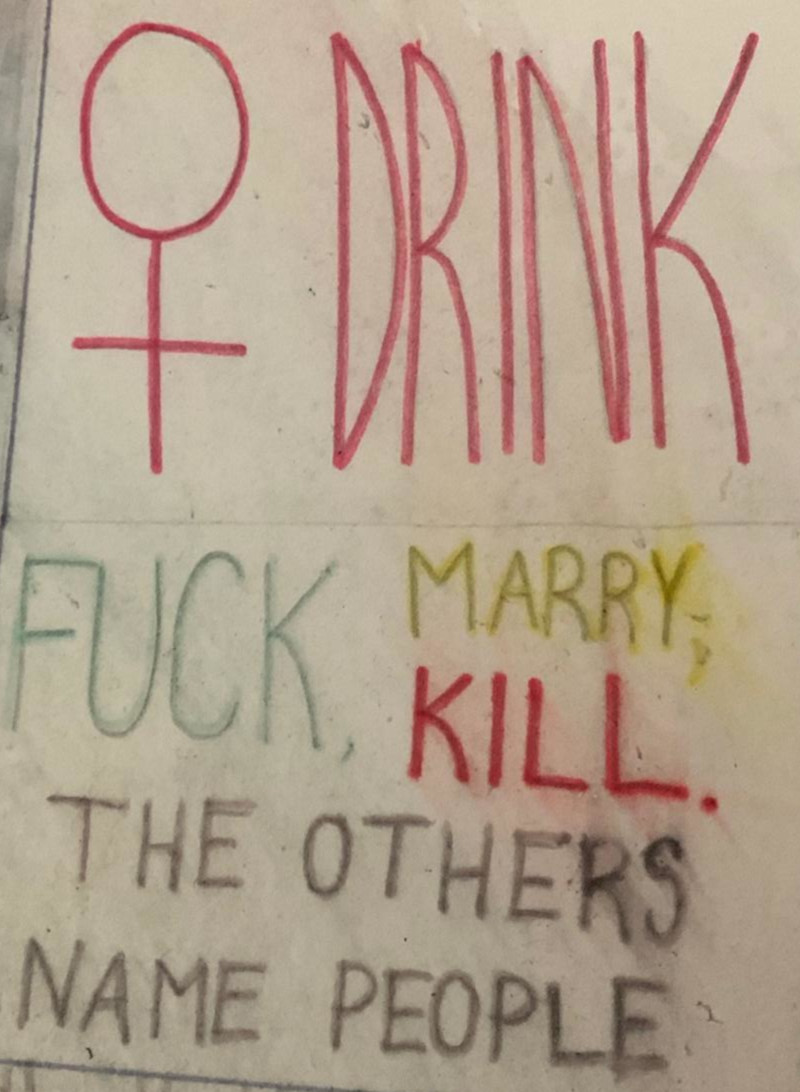 ♀ DRINK
FUCK, MARRY,
KILL.
THE OTHERS
NAME PEOPLE